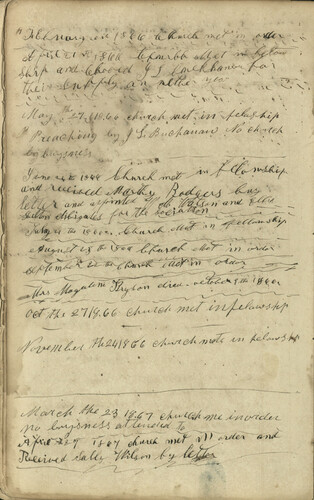 1866 Church met in order
April 1866 Church met in fellow
Ship and Choosed J S Buchanan for
their supply in the
May the 27, 1866 church met in fellowship
Preaching by J S Buchanan No church
buysness
June 1866 Church met in fellowship
and received Marthy Rodgers buy
letter and
deligates for the Sociation
July the 1866 Church Met in fellowship
August 1866 Church Met in order
September the church Met in order
Mrs Magalene died october the 1866
Oct the 27 1866 church met in felowship
November the 24 1866 church mete in felowship
March the 23 1867 church me in order
no buysness attended to
April 27 1867 church met in order and
Received Sally Wilson by letter